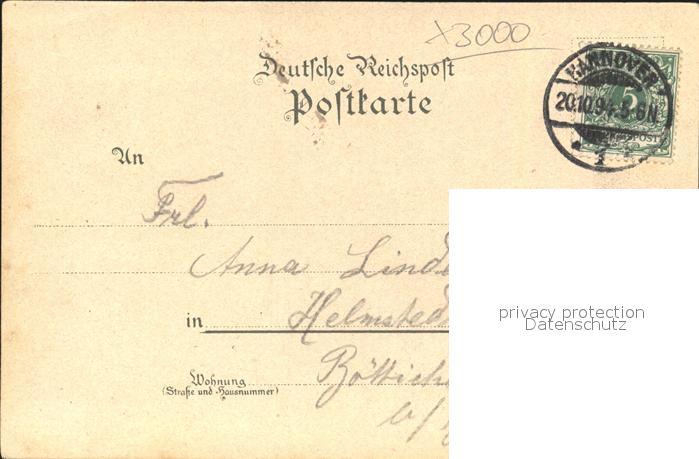 x3000
Deutsche Reichspost
Postkarte
HANNOVER
20.10.94.5-6N.
1
5
An
Frl.
Anna Linde
in Helmsted
Wohnung
(Straße und Hausnummer)
privacy protection
Datenschutz